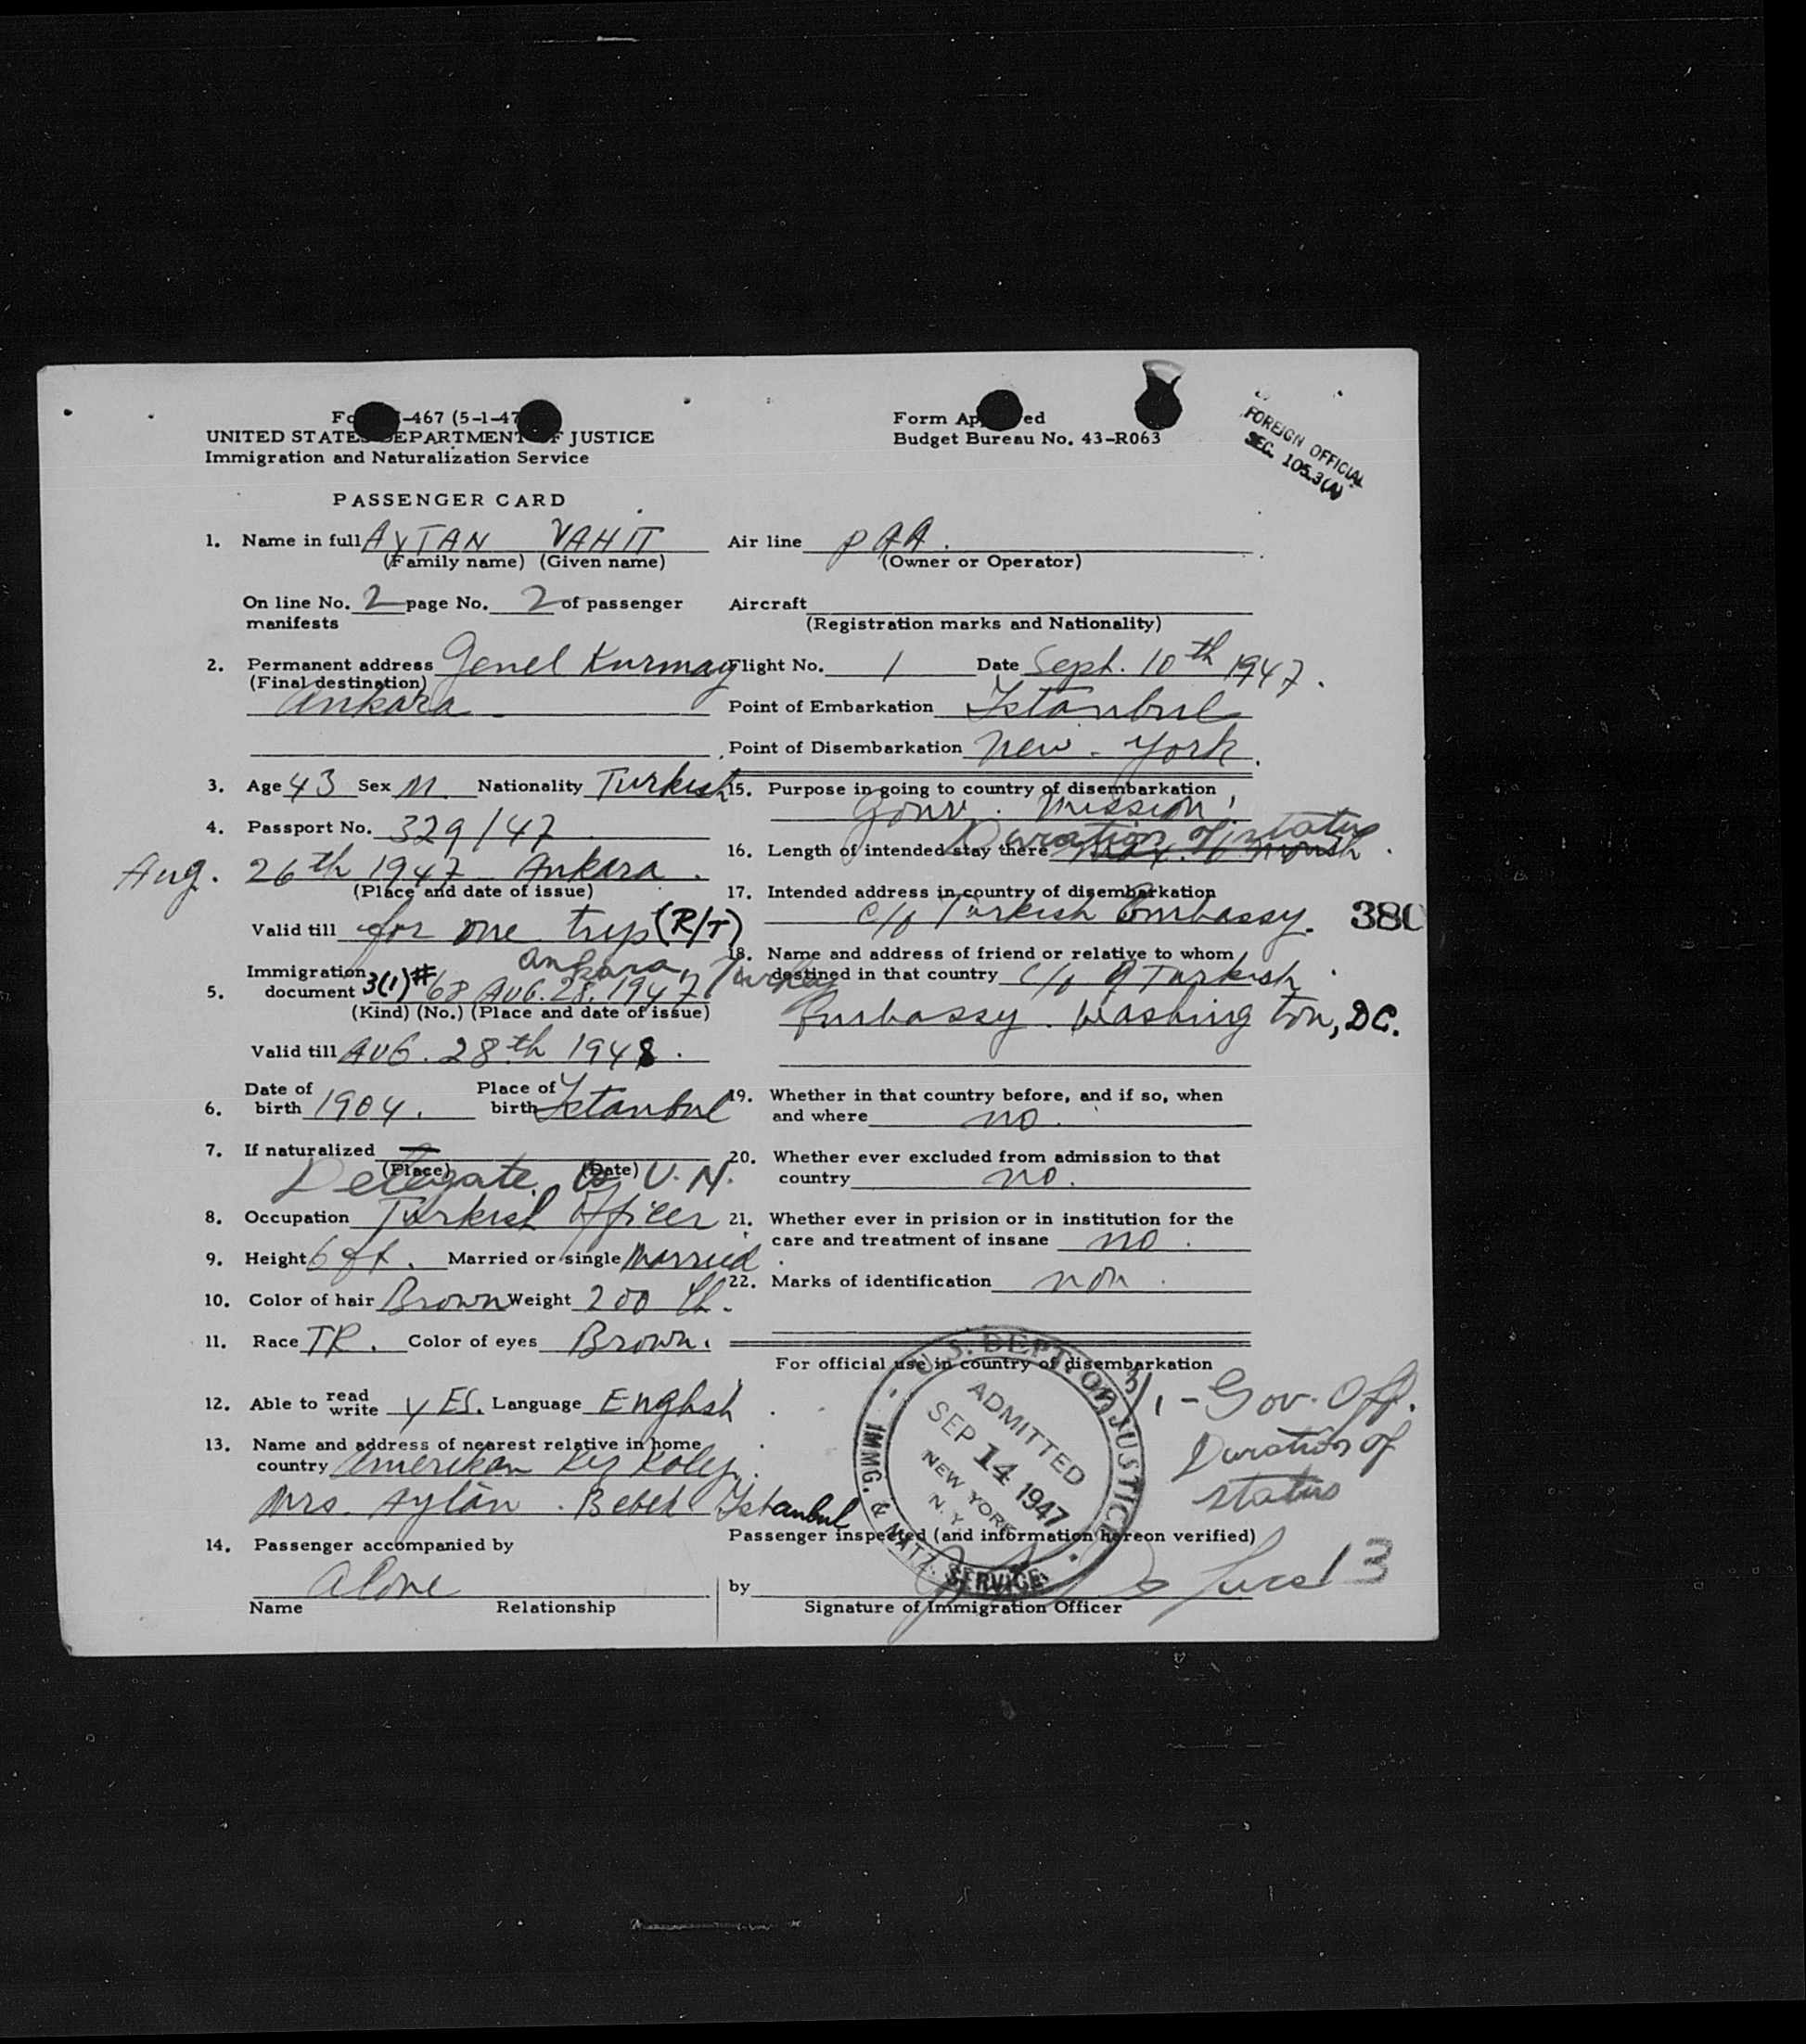 -467 (5-1-47
UNITED STATES DEPARTMENT OF JUSTICE
Immigration and Naturalization Service
PASSENGER CARD
Form Ap ed
Budget Bureau No. 43-R063
FOREIGN OFFICIAL
SEC. 105.3(A)
1. Name in full AYTAN VAHIT
(Family name) (Given name)
On line No. 2 page No. 2 of passenger
manifests
2. Permanent address Genel Kurmay
(Final destination)
Ankara
3. Age 43 Sex M. Nationality Turkish
4. Passport No. 329/47
Aug. 26th 1947 Ankara.
(Place and date of issue)
Valid till for one trip (R/T)
Ankara, Turkey
Immigration
5. document 3(1) # 68 AUG. 28. 1947
(Kind) (No.) (Place and date of issue)
Valid till AUG. 28th 1948.
Date of Place of
6. birth 1904. birth Istanbul
7. If naturalized —
(Place) (Date)
Delegate to U.N.
8. Occupation Turkish Officer
9. Height 6 ft. Married or single Married
10. Color of hair Brown Weight 200 lb.
11. Race TR. Color of eyes Brown.
12. Able to read write yES. Language English
13. Name and address of nearest relative in home
country Amerikan Kız Kolej.
Mrs. Aytân. Bebek Istanbul
14. Passenger accompanied by
Alone
Name Relationship
Air line PAA.
(Owner or Operator)
Aircraft
(Registration marks and Nationality)
Flight No. 1 Date Sept. 10th 1947.
Point of Embarkation Istanbul
Point of Disembarkation New-York.
15. Purpose in going to country of disembarkation
Gouv. Mission
Duration of status
16. Length of intended stay there max. 6 month.
17. Intended address in country of disembarkation
c/o Turkish Embassy. 380
18. Name and address of friend or relative to whom
destined in that country c/o Turkish
Embassy. Washington, DC.
19. Whether in that country before, and if so, when
and where no.
20. Whether ever excluded from admission to that
country no.
21. Whether ever in prision or in institution for the
care and treatment of insane no.
22. Marks of identification non.
For official use in country of disembarkation
U.S. DEPT. OF JUSTICE
ADMITTED
SEP 14 1947
NEW YORK
N. Y.
IMMG. & NATZ. SERVICE
3/1 - Gov. Off.
Duration of
status
Passenger inspected (and information hereon verified)
by
13
Signature of Immigration Officer